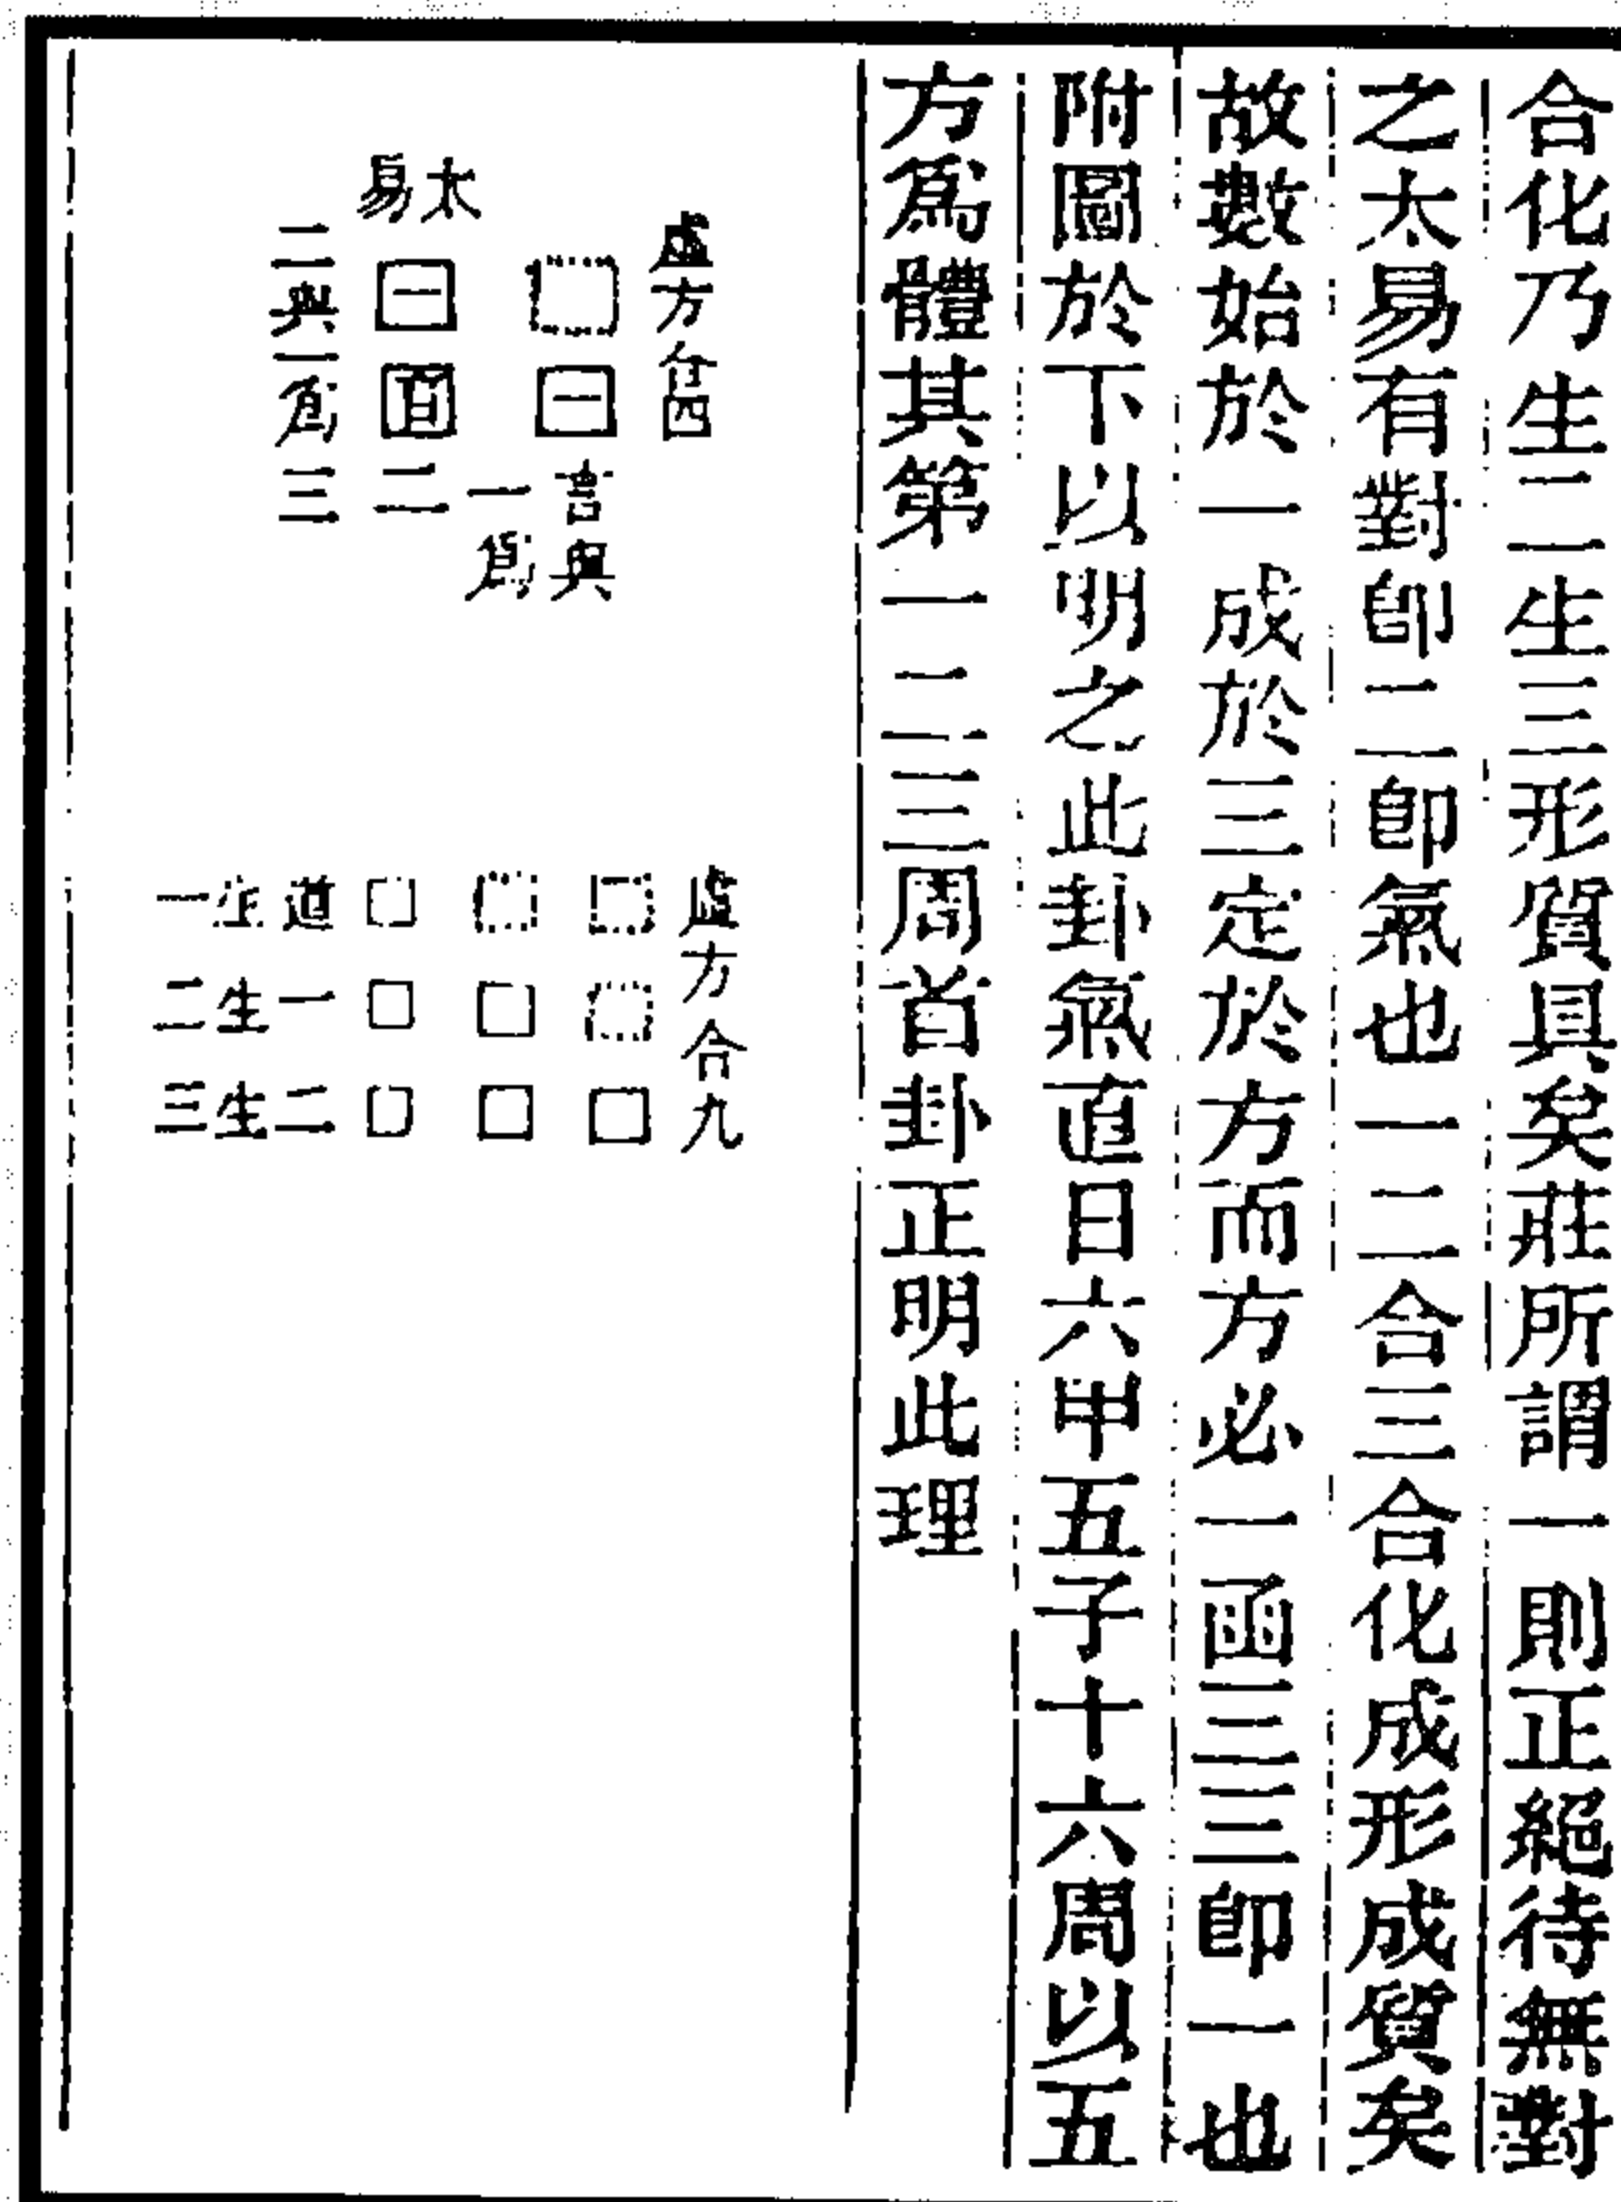 合化乃生二二生三形質具矣莊所謂一則正絕待無對
之太易有對卽二二卽氣也一二合三合化成形成質矣
故數始於一成於三定於方而方必一函三三卽一也
附圖於下以明之此卦氣直日六甲五子十六周以五
方爲體其第一二三周首卦正明此理
虛方合四
一
言與
一爲
太
易
一
面
二
二與一爲三
虛方合九
道生一
一生二
二生三